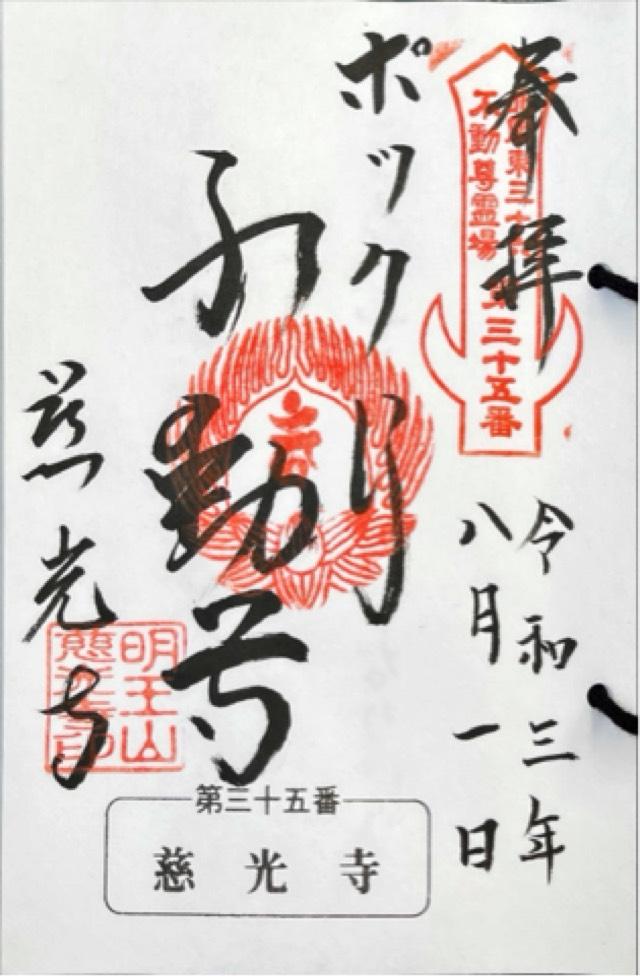 奉拝
東三十
不動尊霊場
第三十五番
令和三年
八月一日
ポックリ
不動尊
慈光寺
明王山
慈光寺印
第三十五番
慈光寺